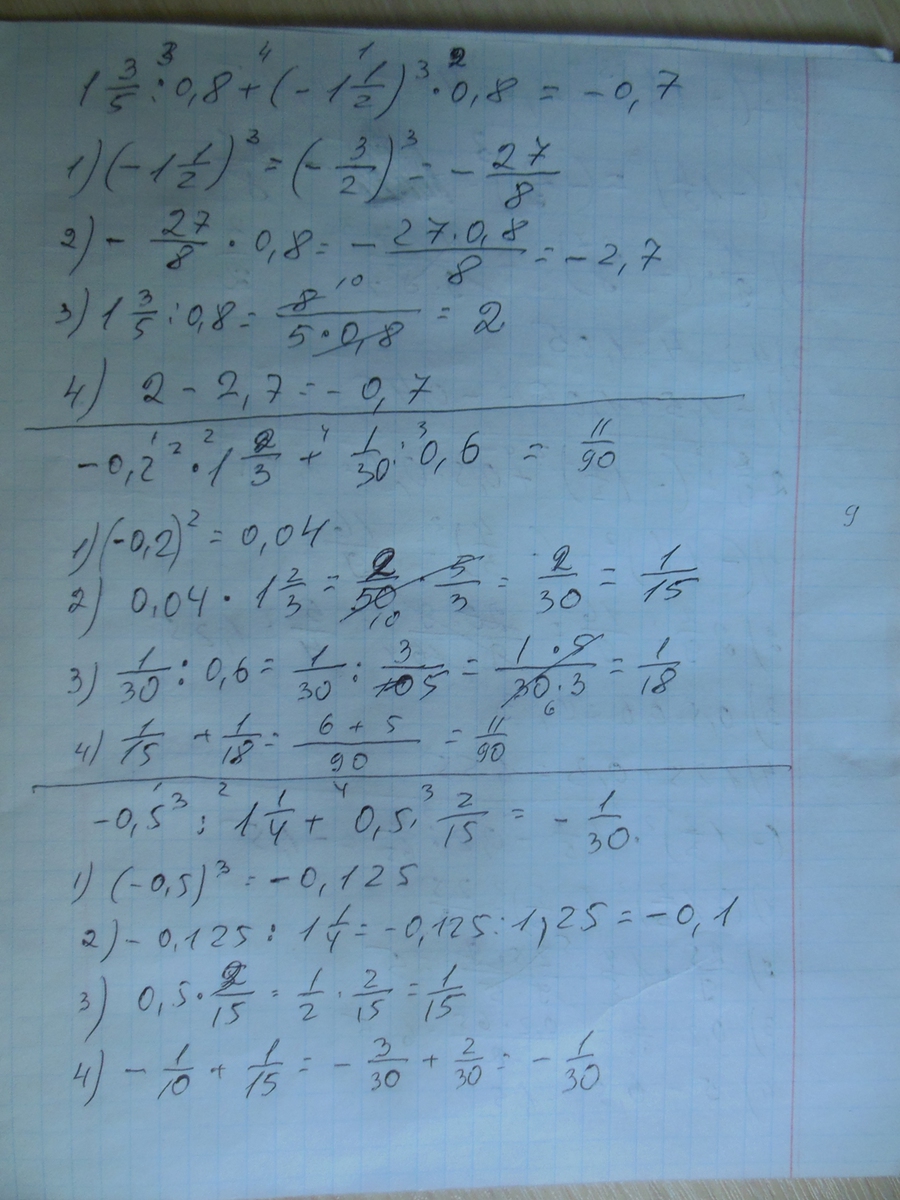 1 3/5 : 0,8 + (-1 1/2)³ · 0,8 = -0,7
1) (-1 1/2)³ = (-3/2)³ = -27/8
2) -27/8 · 0,8 = -(27·0,8)/8 = -2,7
3) 1 3/5 : 0,8 = 8/(5·0,8) 10 = 2
4) 2 - 2,7 = -0,7
-0,2² · 1 2/3 + 1/30 : 0,6 = 11/90
1) (-0,2)² = 0,04
9
2) 0,04 · 1 2/3 = 2/50 10 · 5/3 = 2/30 = 1/15
3) 1/30 : 0,6 = 1/30 : 3/10 5 = (1·5)/(30·3) 6 = 1/18
4) 1/15 + 1/18 = (6+5)/90 = 11/90
-0,5³ : 1 1/4 + 0,5 · 2/15 = -1/30.
1) (-0,5)³ = -0,125
2) -0,125 : 1 1/4 = -0,125 : 1,25 = -0,1
3) 0,5 · 2/15 = 1/2 · 2/15 = 1/15
4) -1/10 + 1/15 = -3/30 + 2/30 = -1/30